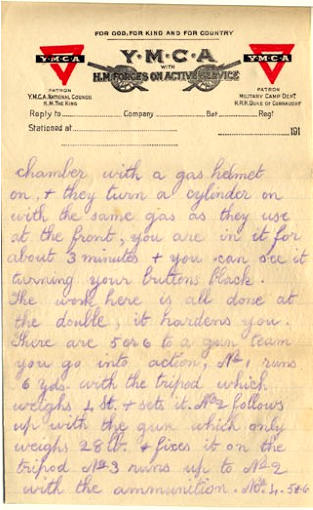 FOR GOD, FOR KING AND FOR COUNTRY
Y.M.C.A Y·M·C·A Y.M.C.A
WITH
H.M. FORCES ON ACTIVE SERVICE
PATRON PATRON
Y.M.C.A. NATIONAL COUNCIL MILITARY CAMP DEPT.
H.M. THE KING H.R.H. DUKE OF CONNAUGHT
Reply to Company Bat Regt
Stationed at 191
chamber, with a gas helmet
on, + they turn a cylinder on
with the same gas as they use
at the front, you are in it for
about 3 minutes + you can see it
turning your buttons black.
The work here is all done at
the double, it hardens you.
There are 5 or 6 to a gun team
you go into action, No 1 runs
6 yds. with the tripod which
weighs 4 St. + sets it. No 2 follows
up with the gun which only
weighs 28 lb. + fixes it on the
tripod No 3 runs up to No 2
with the ammunition. No. 4. 5+6